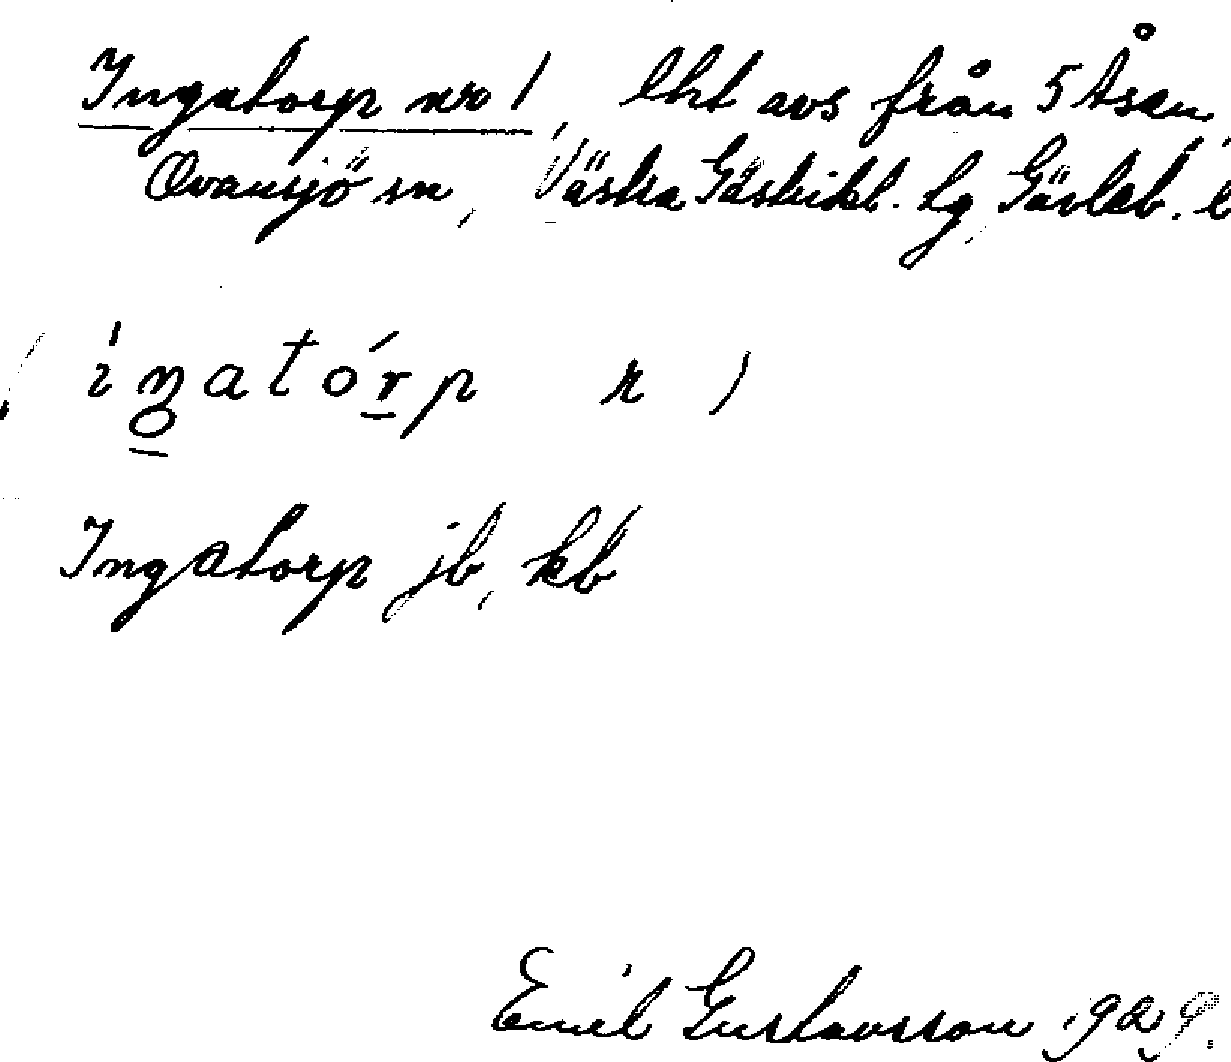 Ingatorp nr 1, lht avs från 5 Åsen,
Ovansjö sn, Västra Gästrikl. tg, Gävleb. l
(íŋatórp r)
Ingatorp jb, kb
Emil Gustavsson 1929.